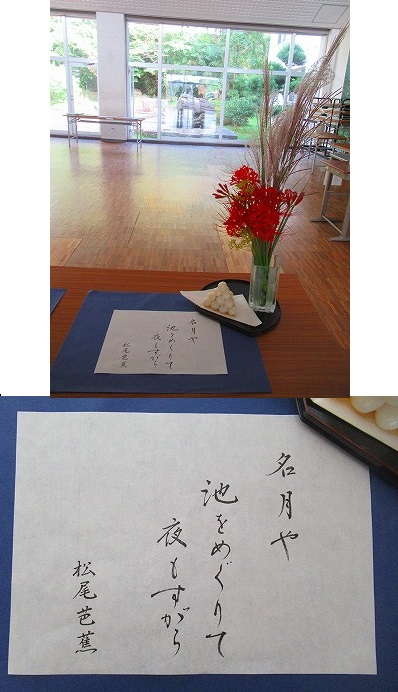 名月や
池をめぐりて
夜もすがら
松尾芭蕉
名月や
池をめぐりて
夜もすがら
松尾芭蕉